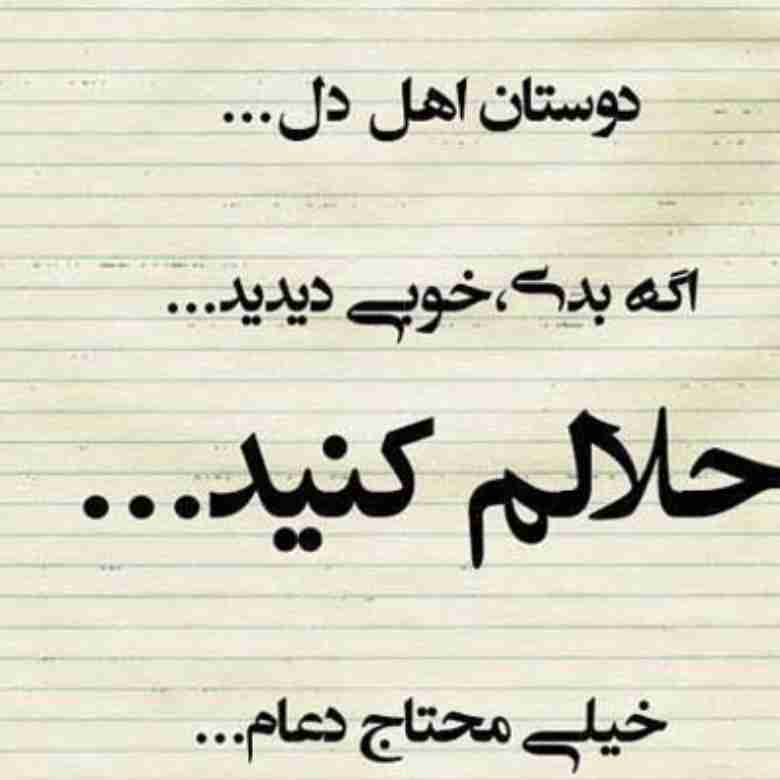 دوستان اهل دل...
اگه بدی،خوبی دیدید...
حلالم کنید...
خیلی محتاج دعام...